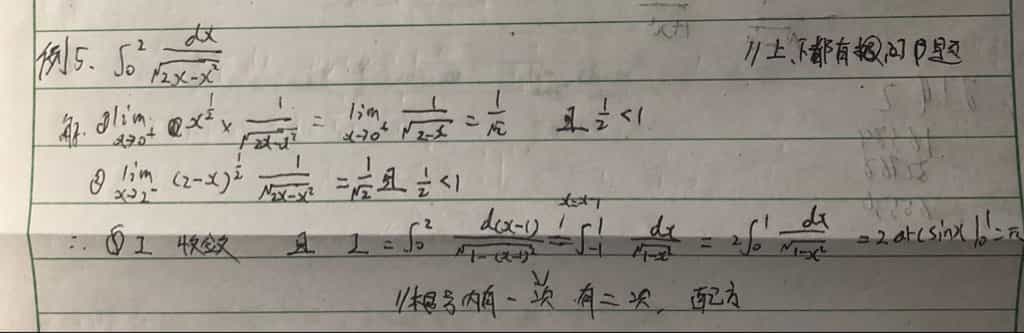 例5. ∫₀² dx/√(2x-x²) //上、下都有瑕的问题
解. ① lim x→0⁺ x^{1/2} × 1/√(2x-x²) = lim x→0⁺ 1/√(2-x) = 1/√2 且 1/2 < 1
② lim x→2⁻ (2-x)^{1/2} 1/√(2x-x²) = 1/√2 且 1/2 < 1
∴ I 收敛 且 I = ∫₀² d(x-1)/√(1-(x-1)²) = ∫₋₁¹ dx/√(1-x²) = 2∫₀¹ dx/√(1-x²) = 2 arcsinx |₀¹ = π
//根号内有一次 有二次, 配方